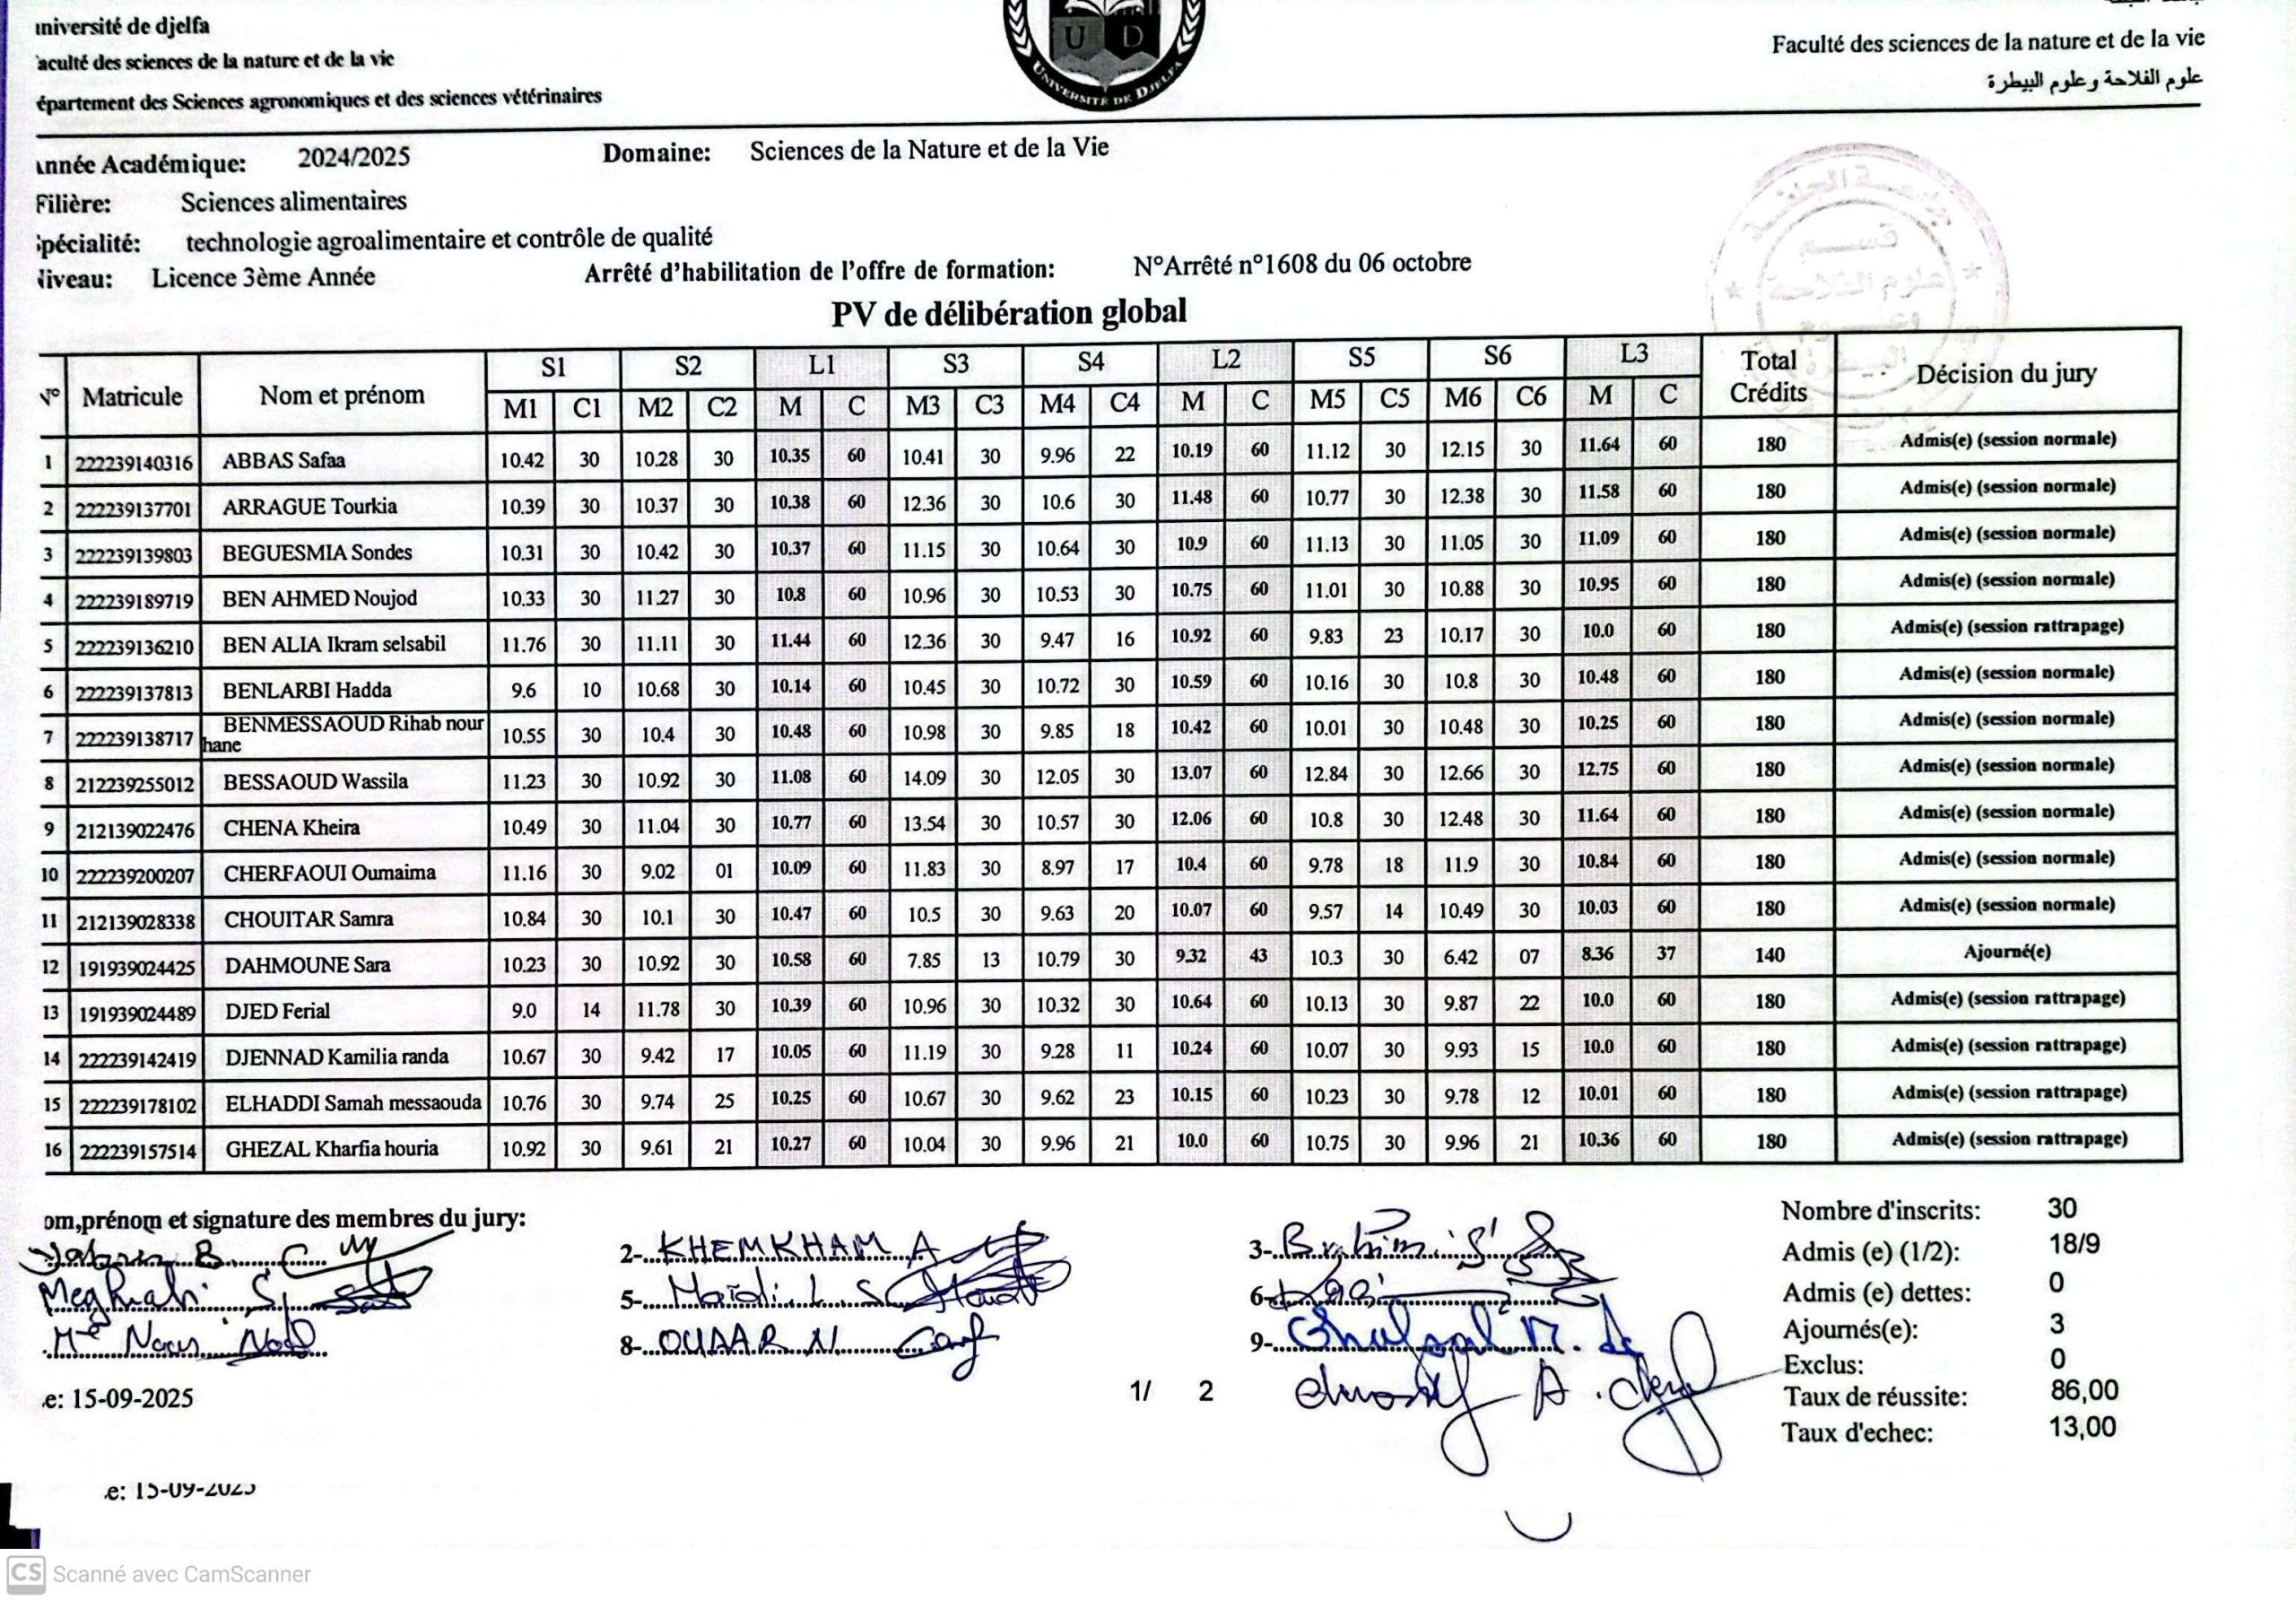 université de djelfa
Faculté des sciences de la nature et de la vie
aculté des sciences de la nature et de la vie
علوم الفلاحة وعلوم البيطرة
épartement des Sciences agronomiques et des sciences vétérinaires
U D
UNIVERSITÉ DE DJELFA
Année Académique: 2024/2025 Domaine: Sciences de la Nature et de la Vie
Filière: Sciences alimentaires
Spécialité: technologie agroalimentaire et contrôle de qualité
Niveau: Licence 3ème Année Arrêté d'habilitation de l'offre de formation: N°Arrêté n°1608 du 06 octobre
PV de délibération global
N° Matricule Nom et prénom S1 S2 L1 S3 S4 L2 S5 S6 L3 Total Crédits Décision du jury
M1 C1 M2 C2 M C M3 C3 M4 C4 M C M5 C5 M6 C6 M C
1 222239140316 ABBAS Safaa 10.42 30 10.28 30 10.35 60 10.41 30 9.96 22 10.19 60 11.12 30 12.15 30 11.64 60 180 Admis(e) (session normale)
2 222239137701 ARRAGUE Tourkia 10.39 30 10.37 30 10.38 60 12.36 30 10.6 30 11.48 60 10.77 30 12.38 30 11.58 60 180 Admis(e) (session normale)
3 222239139803 BEGUESMIA Sondes 10.31 30 10.42 30 10.37 60 11.15 30 10.64 30 10.9 60 11.13 30 11.05 30 11.09 60 180 Admis(e) (session normale)
4 222239189719 BEN AHMED Noujod 10.33 30 11.27 30 10.8 60 10.96 30 10.53 30 10.75 60 11.01 30 10.88 30 10.95 60 180 Admis(e) (session normale)
5 222239136210 BEN ALIA Ikram selsabil 11.76 30 11.11 30 11.44 60 12.36 30 9.47 16 10.92 60 9.83 23 10.17 30 10.0 60 180 Admis(e) (session rattrapage)
6 222239137813 BENLARBI Hadda 9.6 10 10.68 30 10.14 60 10.45 30 10.72 30 10.59 60 10.16 30 10.8 30 10.48 60 180 Admis(e) (session normale)
7 222239138717 BENMESSAOUD Rihab nour hane 10.55 30 10.4 30 10.48 60 10.98 30 9.85 18 10.42 60 10.01 30 10.48 30 10.25 60 180 Admis(e) (session normale)
8 212239255012 BESSAOUD Wassila 11.23 30 10.92 30 11.08 60 14.09 30 12.05 30 13.07 60 12.84 30 12.66 30 12.75 60 180 Admis(e) (session normale)
9 212139022476 CHENA Kheira 10.49 30 11.04 30 10.77 60 13.54 30 10.57 30 12.06 60 10.8 30 12.48 30 11.64 60 180 Admis(e) (session normale)
10 222239200207 CHERFAOUI Oumaima 11.16 30 9.02 01 10.09 60 11.83 30 8.97 17 10.4 60 9.78 18 11.9 30 10.84 60 180 Admis(e) (session normale)
11 212139028338 CHOUITAR Samra 10.84 30 10.1 30 10.47 60 10.5 30 9.63 20 10.07 60 9.57 14 10.49 30 10.03 60 180 Admis(e) (session normale)
12 191939024425 DAHMOUNE Sara 10.23 30 10.92 30 10.58 60 7.85 13 10.79 30 9.32 43 10.3 30 6.42 07 8.36 37 140 Ajourné(e)
13 191939024489 DJED Ferial 9.0 14 11.78 30 10.39 60 10.96 30 10.32 30 10.64 60 10.13 30 9.87 22 10.0 60 180 Admis(e) (session rattrapage)
14 222239142419 DJENNAD Kamilia randa 10.67 30 9.42 17 10.05 60 11.19 30 9.28 11 10.24 60 10.07 30 9.93 15 10.0 60 180 Admis(e) (session rattrapage)
15 222239178102 ELHADDI Samah messaouda 10.76 30 9.74 25 10.25 60 10.67 30 9.62 23 10.15 60 10.23 30 9.78 12 10.01 60 180 Admis(e) (session rattrapage)
16 222239157514 GHEZAL Kharfia houria 10.92 30 9.61 21 10.27 60 10.04 30 9.96 21 10.0 60 10.75 30 9.96 21 10.36 60 180 Admis(e) (session rattrapage)
om,prénom et signature des membres du jury:
2- KHEMKHAM A
3- Brahimi S
5- Maïdi L S
6-
8- OUAAR N
9-
Nombre d'inscrits: 30
Admis (e) (1/2): 18/9
Admis (e) dettes: 0
Ajournés(e): 3
Exclus: 0
Taux de réussite: 86,00
Taux d'echec: 13,00
e: 15-09-2025
1/ 2
e: 15-09-2025
CS Scanné avec CamScanner